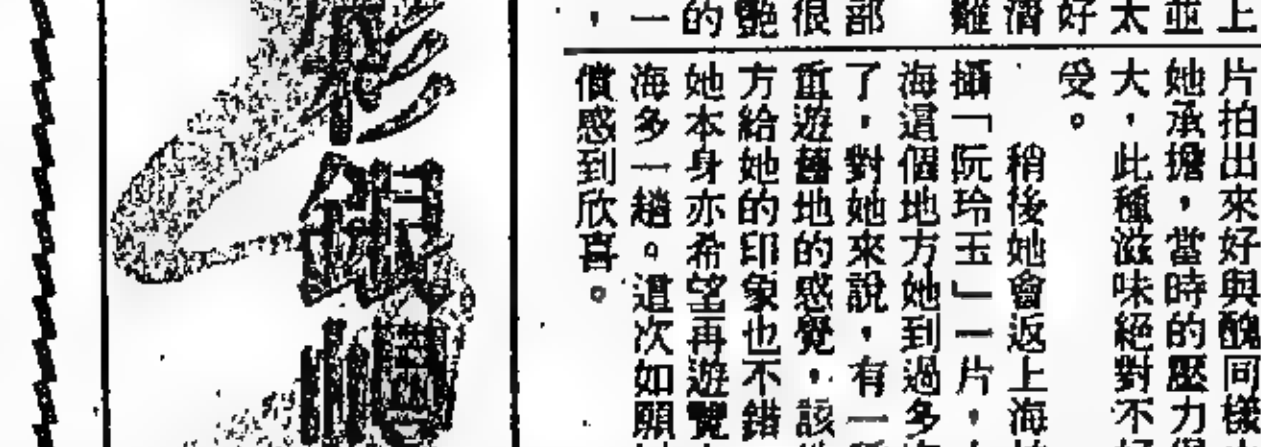 上
並
太
好
濟
難
部
很
艷
的
一
，
片拍出來好與醜同樣
她承擔，當時的壓力
大，此種滋味絕對不好
受。
稍後她會返上海
攝「阮玲玉」一片，
海這個地方她到過多
了，對她來說，有一
重遊舊地的感覺，該
方給她的印象也不錯
她本身亦希望再遊覽
海多一趟。這次如願
償感到欣喜。
影銀